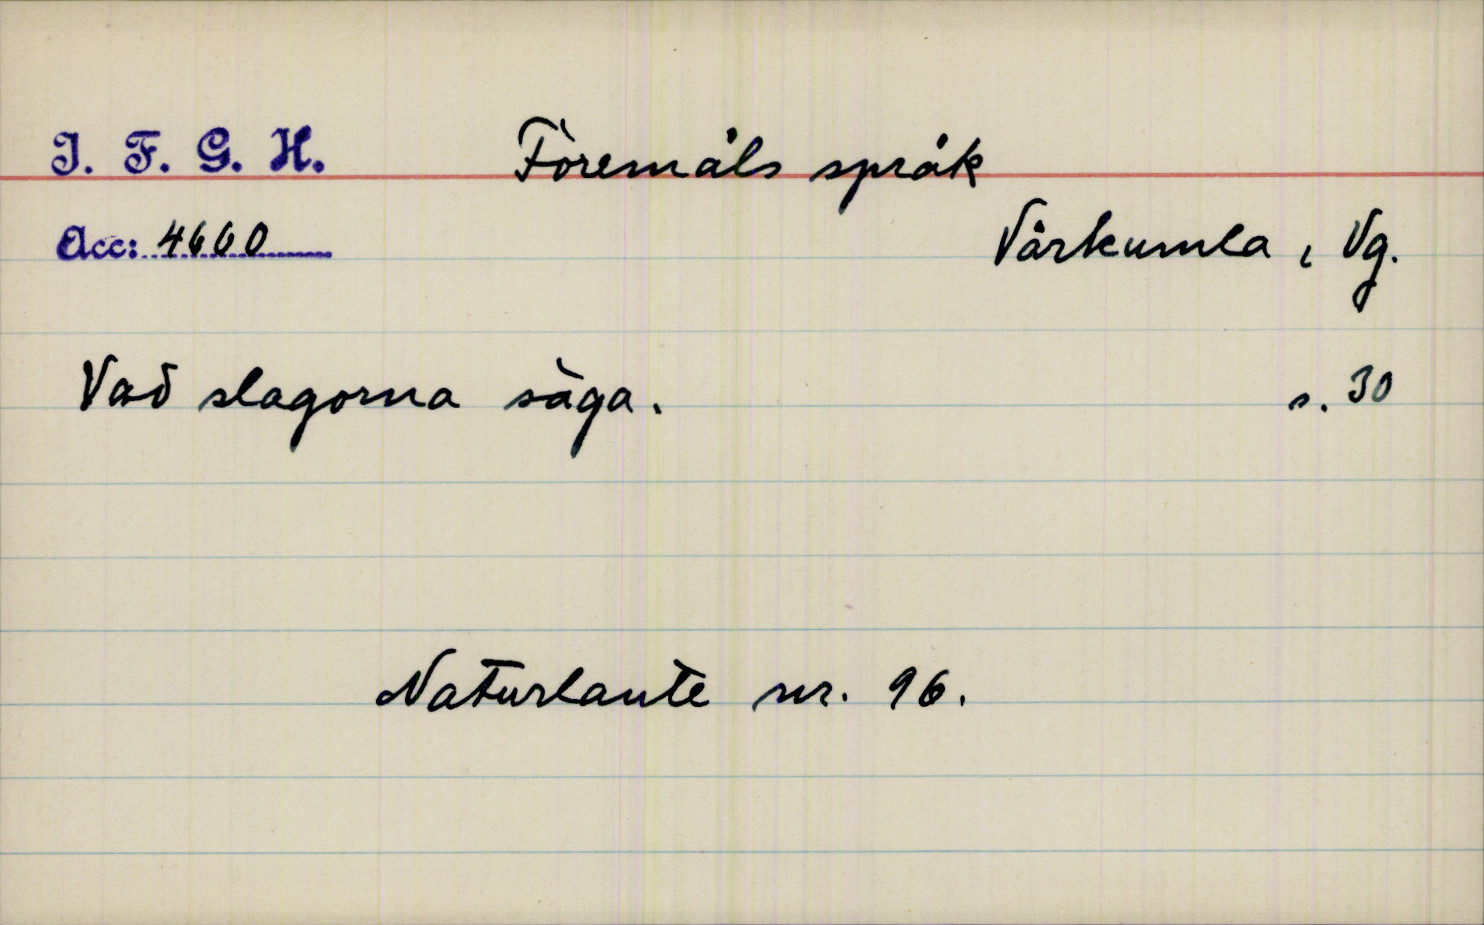 I. F. G. H.
Föremåls språk
Acc: 4660
Vårkumla, Vg.
Vad slagorna säga.
s. 30
Naturlaute nr. 96.